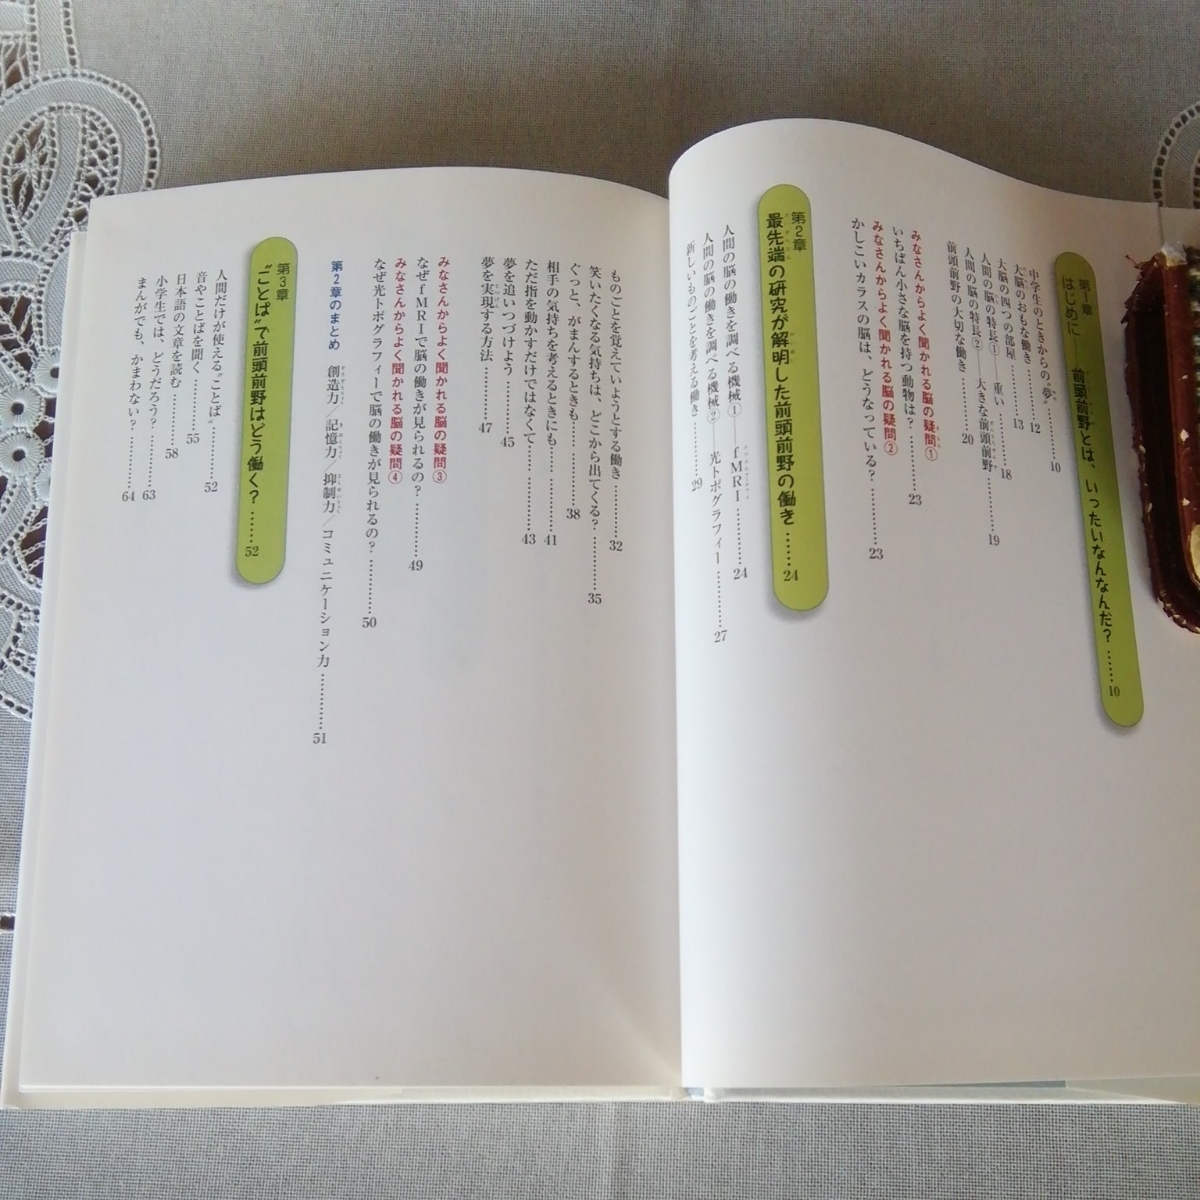 第1章
はじめに——前頭前野とは、いったいなんなんだ？……10
中学生のときからの“夢”……10
大脳のおもな働き……12
大脳の四つの部屋……13
人間の脳の特長①——重い……18
人間の脳の特長②——大きな前頭前野……19
前頭前野の大切な働き……20
みなさんからよく聞かれる脳の疑問①
いちばん小さな脳を持つ動物は？……23
みなさんからよく聞かれる脳の疑問②
かしこいカラスの脳は、どうなっている？……23
第2章
最先端の研究が解明した前頭前野の働き……24
人間の脳の働きを調べる機械①——fMRI……24
人間の脳の働きを調べる機械②——光トポグラフィー……27
新しいものごとを考える働き……29
ものごとを覚えていようとする働き……32
笑いたくなる気持ちは、どこから出てくる？……35
ぐっと、がまんするときも……38
相手の気持ちを考えるときにも……41
ただ指を動かすだけではなくて……43
夢を追いつづけよう……45
夢を実現する方法……47
みなさんからよく聞かれる脳の疑問③
なぜfMRIで脳の働きが見られるの？……49
みなさんからよく聞かれる脳の疑問④
なぜ光トポグラフィーで脳の働きが見られるの？……50
第2章のまとめ　創造力／記憶力／抑制力／コミュニケーション力……51
第3章
“ことば”で前頭前野はどう働く？……52
人間だけが使える“ことば”……52
音やことばを聞く……55
日本語の文章を読む……58
小学生では、どうだろう？……63
まんがでも、かまわない？……64